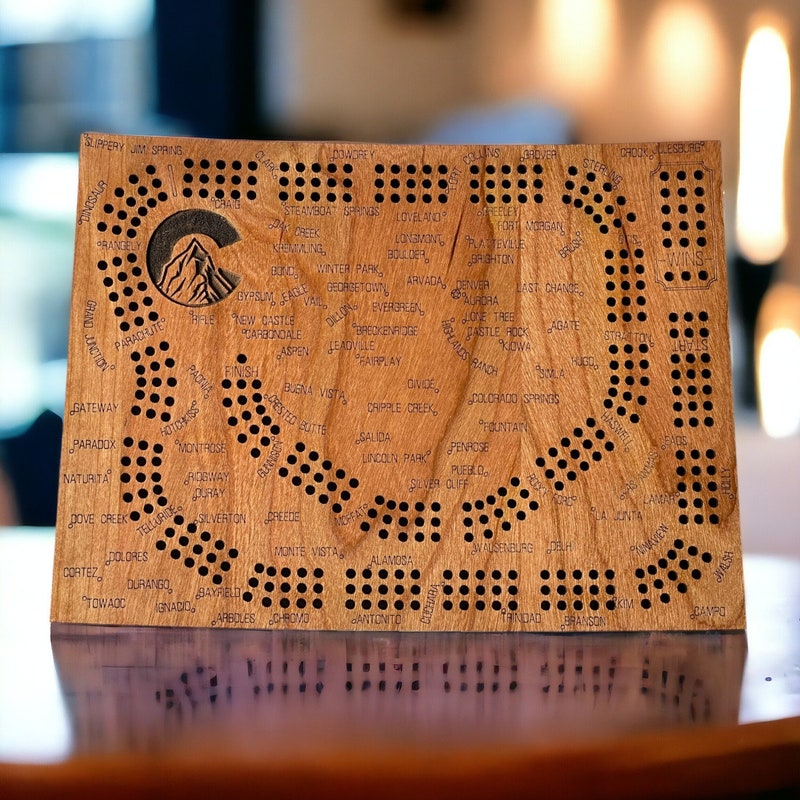 SLIPPERY JIM SPRING
CLARK
COWDREY
FORT COLLINS
GROVER
STERLING
CROOK
JULESBURG
DINOSAUR
CRAIG
STEAMBOAT SPRINGS
LOVELAND
GREELEY
FORT MORGAN
OAK CREEK
RANGELY
KREMMLING
LONGMONT
PLATTEVILLE
BOULDER
BRIGHTON
WINS
BOND
WINTER PARK
GYPSUM
EAGLE
VAIL
GEORGETOWN
ARVADA
DENVER
LAST CHANCE
AURORA
GRAND JUNCTION
PARACHUTE
RIFLE
NEW CASTLE
DILLON
EVERGREEN
LONE TREE
CARBONDALE
BRECKENRIDGE
CASTLE ROCK
AGATE
STRATTON
START
LEADVILLE
HIGHLANDS RANCH
KIOWA
ASPEN
FAIRPLAY
HUGO
SIMLA
PAONIA
FINISH
BUENA VISTA
DIVIDE
COLORADO SPRINGS
GATEWAY
HOTCHKISS
CRESTED BUTTE
CRIPPLE CREEK
FOUNTAIN
HASWELL
PARADOX
MONTROSE
GUNNISON
SALIDA
PENROSE
EADS
LINCOLN PARK
PUEBLO
NATURITA
RIDGWAY
OURAY
SILVER CLIFF
ROCKY FORD
LAMAR
HOLLY
DOVE CREEK
TELLURIDE
SILVERTON
CREEDE
MOFFAT
LA JUNTA
DOLORES
MONTE VISTA
ALAMOSA
WALSENBURG
DELHI
NINAVIEW
WALSH
CORTEZ
DURANGO
BAYFIELD
KIM
TOWAOC
IGNACIO
ARBOLES
CHROMO
ANTONITO
TRINIDAD
BRANSON
CAMPO